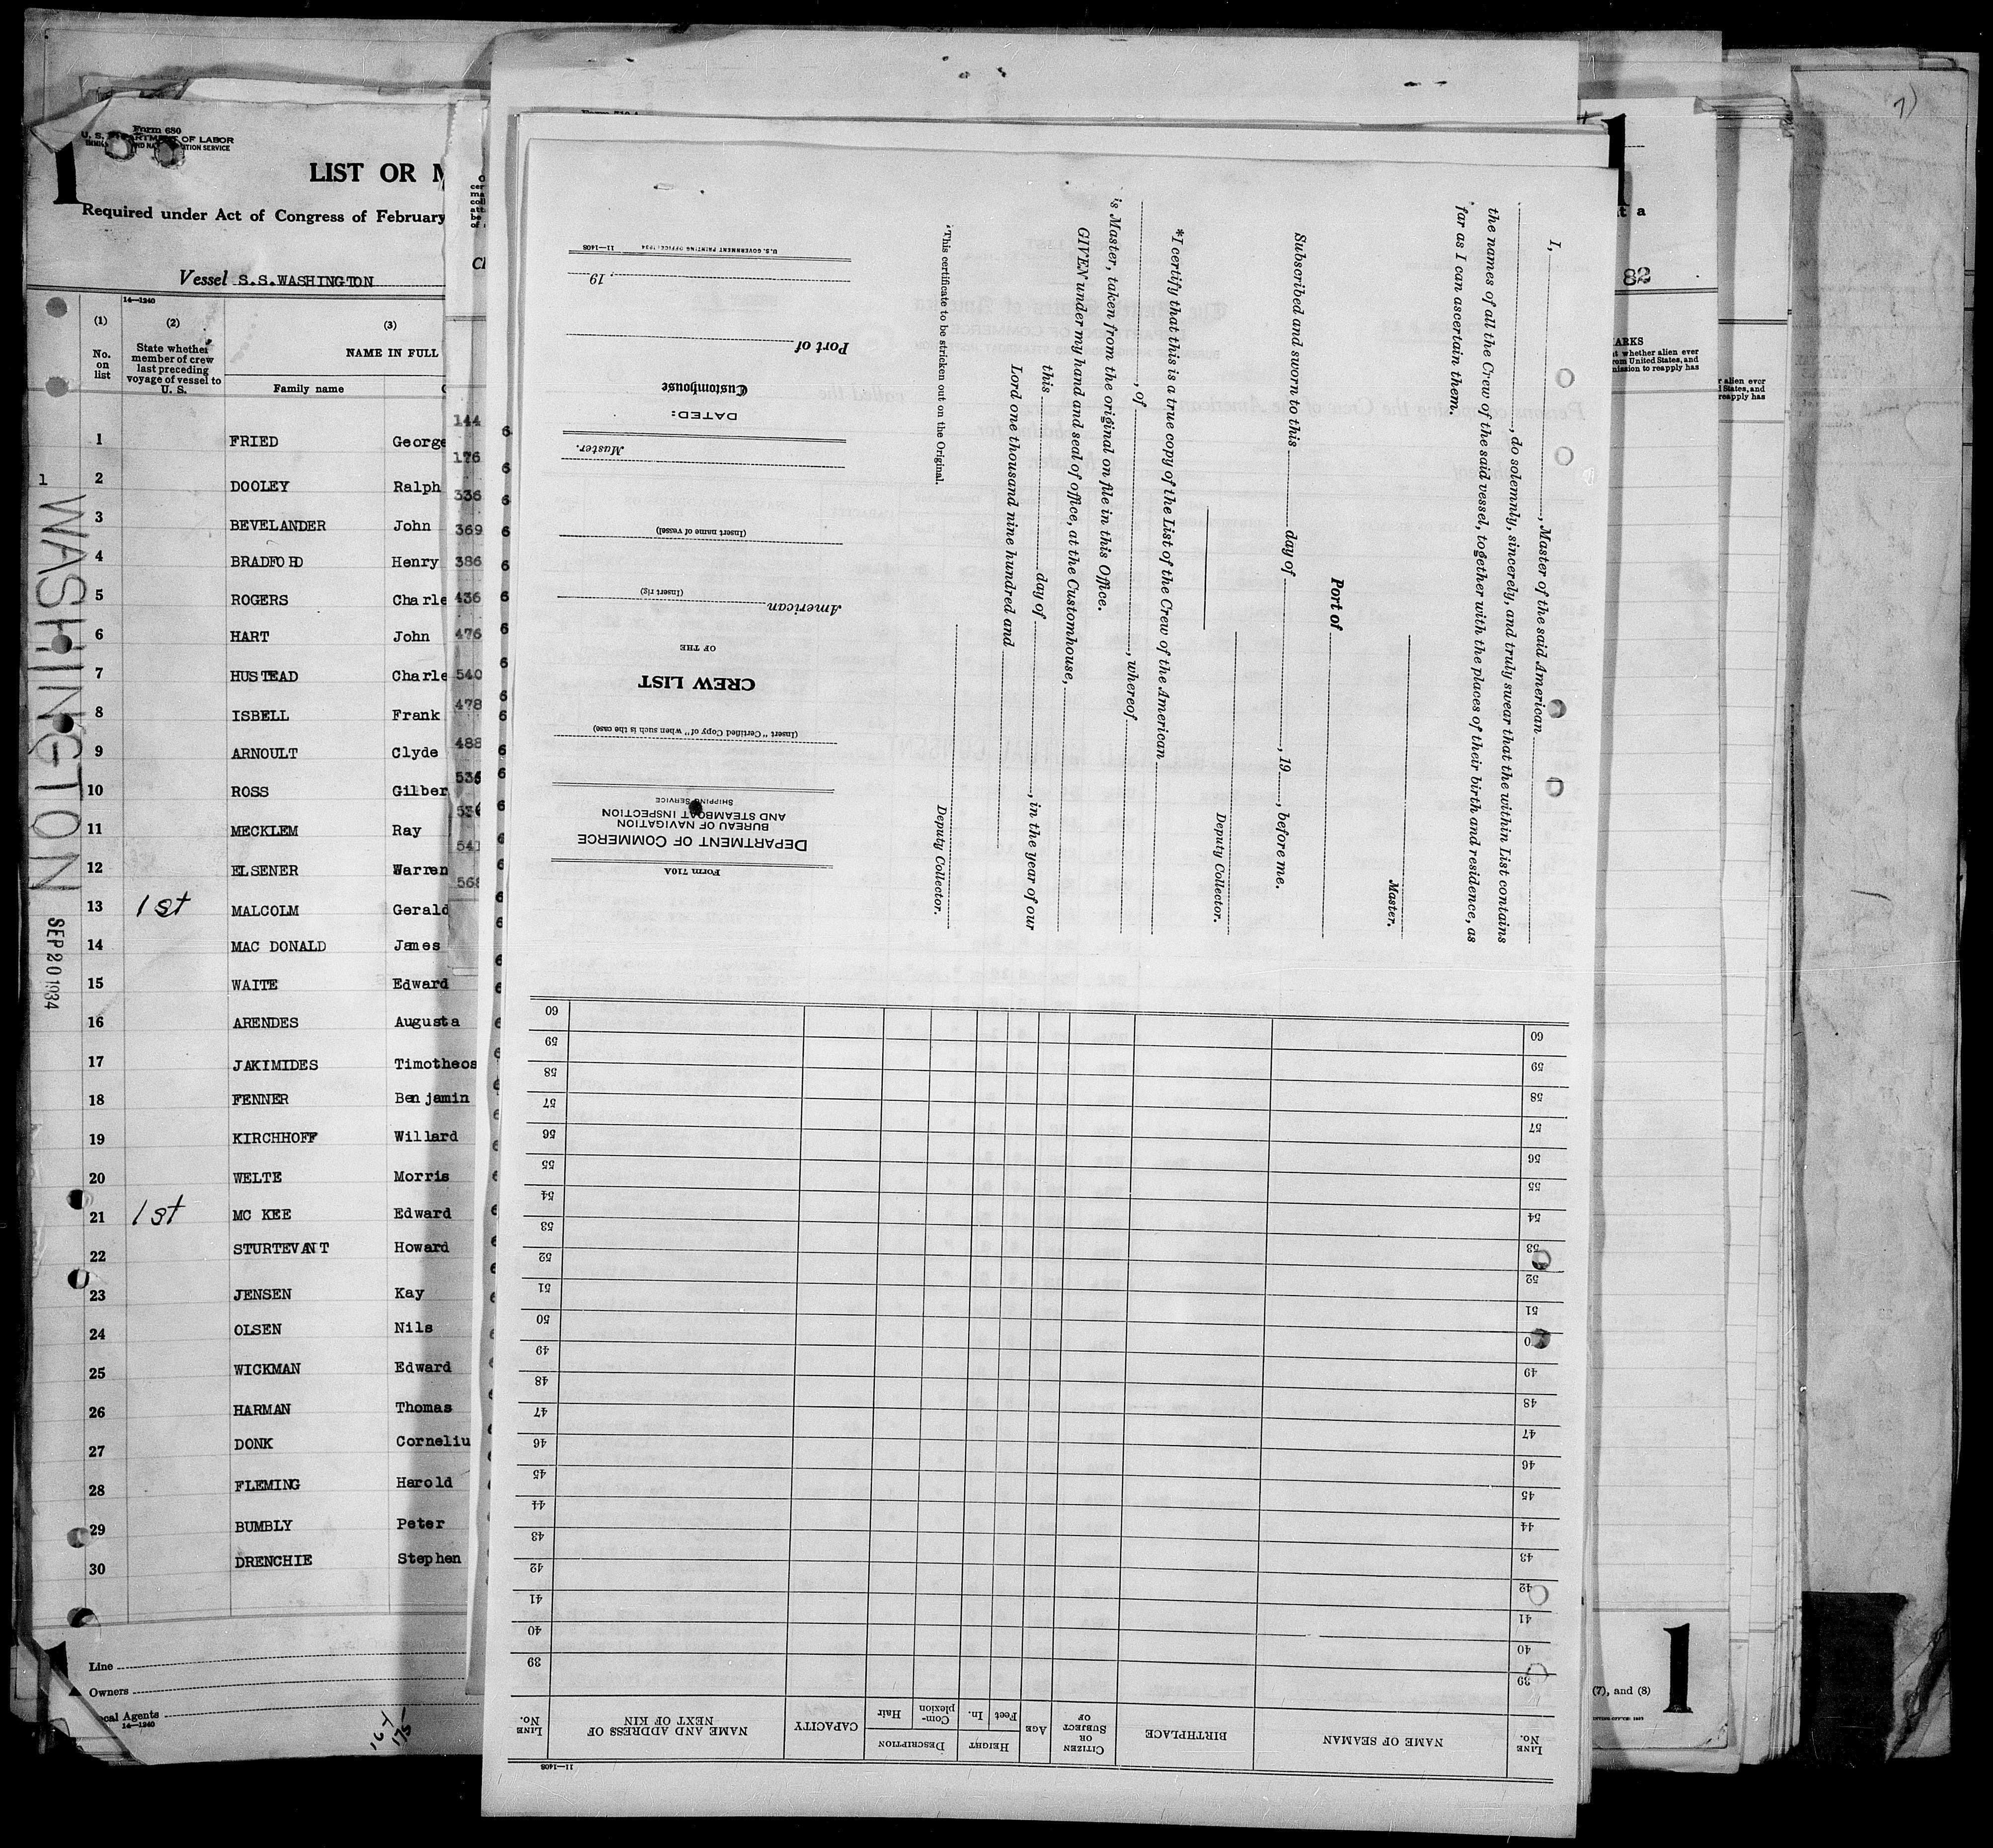 Form 680
U. S. DEPARTMENT OF LABOR
1
LIST OR M
Required under Act of Congress of February
Vessel S.S.WASHINGTON
14—1240
(1)
(2)
(3)
No. on list
State whether member of crew last preceding voyage of vessel to U. S.
NAME IN FULL
Family name
1 FRIED George
2 DOOLEY Ralph
3 BEVELANDER John
4 BRADFORD Henry
5 ROGERS Charle
6 HART John
7 HUSTEAD Charle
8 ISBELL Frank
9 ARNOULT Clyde
10 ROSS Gilber
11 MECKLEM Ray
12 ELSENER Warren
13 1st MALCOLM Gerald
14 MAC DONALD James
15 WAITE Edward
16 ARENDES Augusta
17 JAKIMIDES Timotheos
18 FENNER Benjamin
19 KIRCHHOFF Willard
20 WELTE Morris
21 1st MC KEE Edward
22 STURTEVANT Howard
23 JENSEN Kay
24 OLSEN Nils
25 WICKMAN Edward
26 HARMAN Thomas
27 DONK Corneliu
28 FLEMING Harold
29 BUMBLY Peter
30 DRENCHIE Stephen
Line
Owners
ocal Agents
14—1240
167
175
1
WASHINGTON
SEP 20 1934
144
176
336
369
386
436
476
540
478
488
535
536
541
568
I, , Master of the said American
, do solemnly, sincerely, and truly swear that the within List contains
the names of all the Crew of the said vessel, together with the places of their birth and residence, as
far as I can ascertain them.
Master.
Port of
Subscribed and sworn to this day of , 19 , before me.
Deputy Collector.
*I certify that this is a true copy of the List of the Crew of the American
, of , whereof
is Master, taken from the original on file in this Office.
GIVEN under my hand and seal of office, at the Customhouse,
this day of , in the year of our
Lord one thousand nine hundred and
Deputy Collector.
*This certificate to be stricken out on the Original.
Form 710A
DEPARTMENT OF COMMERCE
BUREAU OF NAVIGATION
AND STEAMBOAT INSPECTION
SHIPPING SERVICE
(Insert "Certified Copy of" when such is the case)
CREW LIST
OF THE
American
(Insert rig)
(Insert name of vessel)
Master.
DATED:
Customhouse
Port of
, 19
U.S. GOVERNMENT PRINTING OFFICE: 1934 11—1408
11—1408
LINE No.
NAME OF SEAMAN
BIRTHPLACE
CITIZEN OR SUBJECT OF
AGE
HEIGHT
Feet
In.
DESCRIPTION
Com-plexion
Hair
CAPACITY
NAME AND ADDRESS OF NEXT OF KIN
LINE No.
39 39
40 40
41 41
42 42
43 43
44 44
45 45
46 46
47 47
48 48
49 49
50
51 51
52 52
53 53
54 54
55 55
56 56
57 57
58 58
59 59
60 60
t a
82
ARKS
whether alien ever
rom United States, and
mission to reapply has
r alien ever
States, and
reapply has
(7), and (8)
1